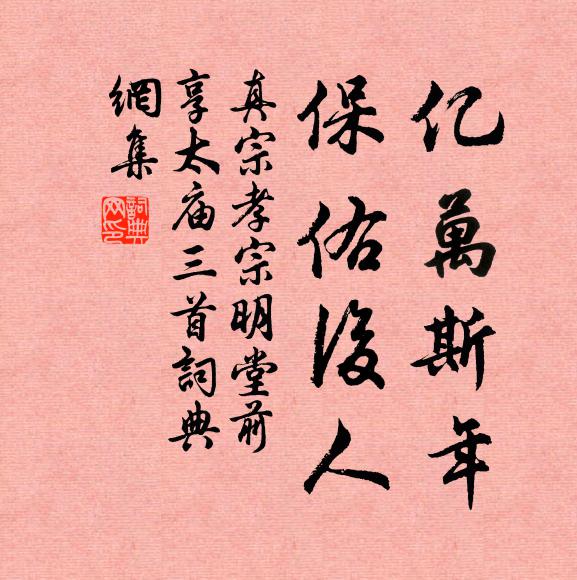 亿萬斯年
保佑後人
真宗孝宗明堂前
享太庙三首詞典
網集
詞典
网印